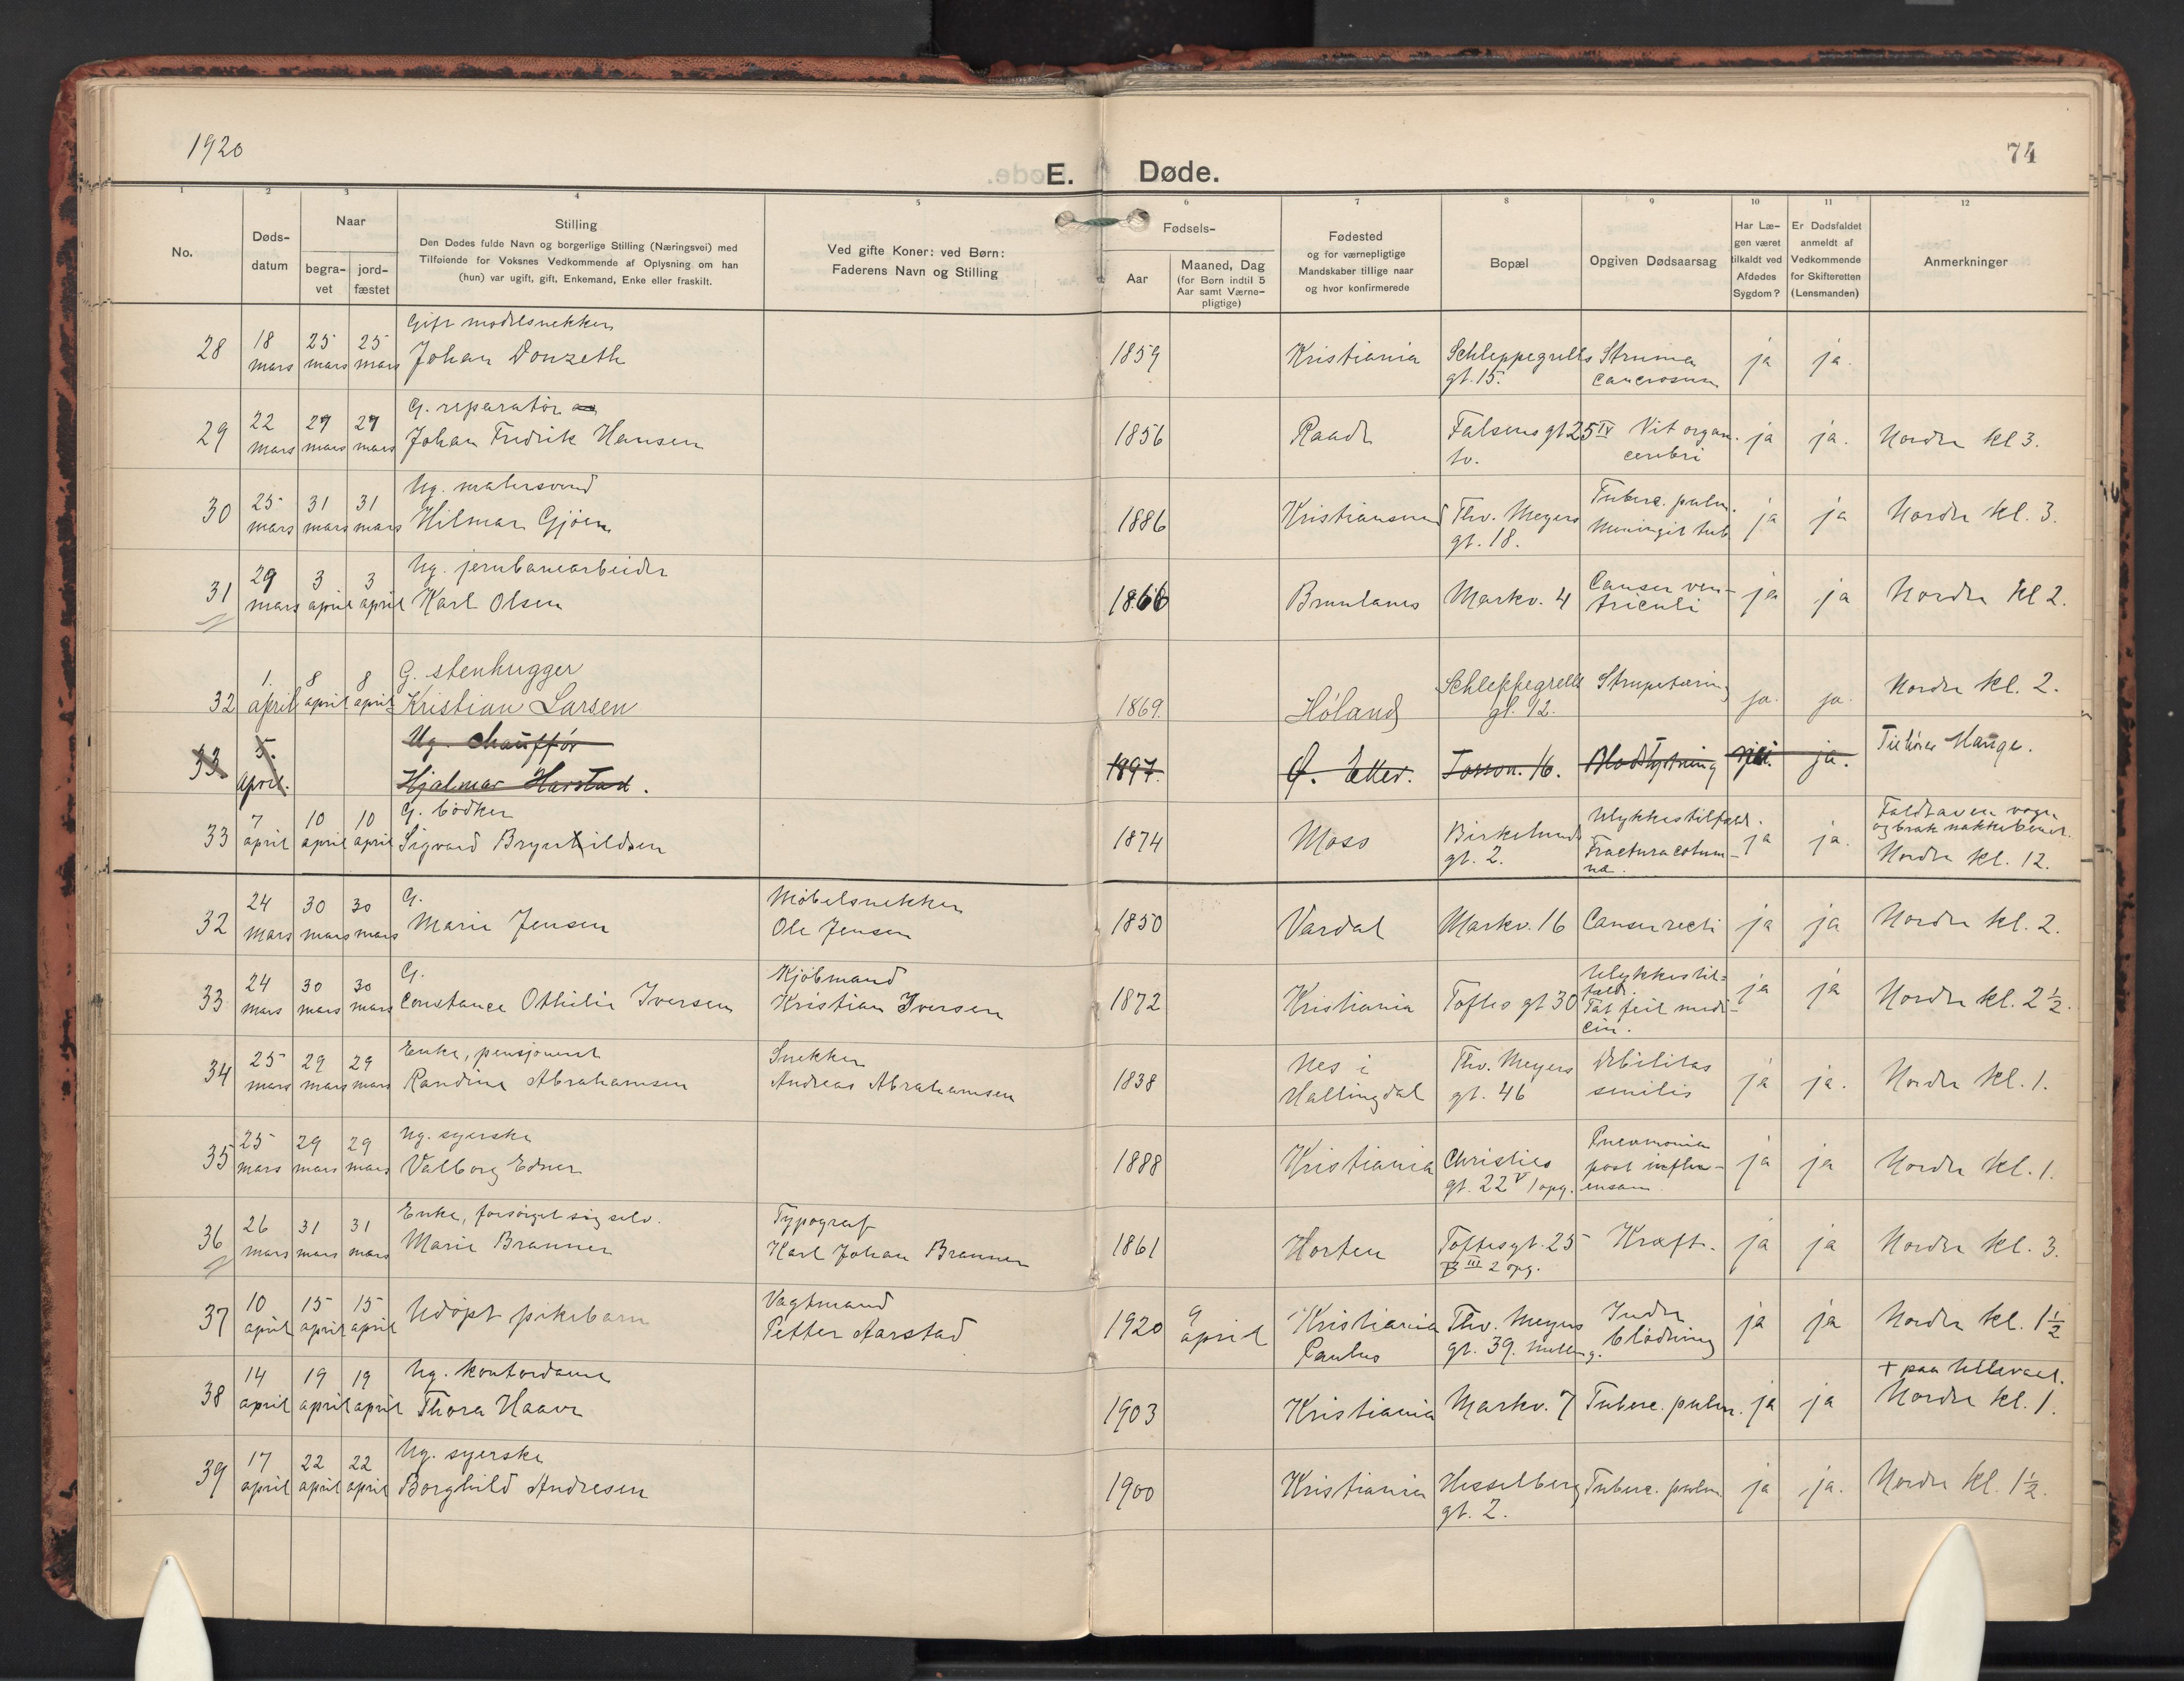 1920
74
E. Døde.
1 2 3 4 5 6 7 8 9 10 11 12
No.
Døds-
datum
Naar
begra-
vet
jord-
fæstet
Stilling
Den Dødes fulde Navn og borgerlige Stilling (Næringsvei) med
Tilføiende for Voksnes Vedkommende af Oplysning om han
(hun) var ugift, gift, Enkemand, Enke eller fraskilt.
Ved gifte Koner: ved Børn:
Faderens Navn og Stilling
Fødsels-
Aar
Maaned, Dag
(for Børn indtil 5
Aar samt Værne-
pligtige)
Fødested
og for værnepligtige
Mandskaber tillige naar
og hvor konfirmerede
Bopæl
Opgiven Dødsaarsag
Har Læ-
gen været
tilkaldt ved
Afdødes
Sygdom?
Er Dødsfaldet
anmeldt af
Vedkommende
for Skifteretten
(Lensmanden)
Anmerkninger
Gift modelsnekker
28 18 mars 25 mars 25 mars Johan Donzeth 1859 Kristiania Schleppegrells gt. 15. Struma cancrosum ja ja.
G. reparatør
29 22 mars 29 mars 29 mars Johan Fredrik Hansen 1856 Raade Falsens gt 25 IV to. Vit organ. cerebri ja ja. Nordre kl 3.
Ug. malersvend
30 25 mars 31 mars 31 mars Hilmar Gjøen 1886 Kristiansund Thv. Meyers gt. 18. Tuberc. pulm. Meningit tub ja ja Nordre kl. 3.
Ug. jernbanearbeider
31 29 mars 3 april 3 april Karl Olsen 1866 Brunlanes Markv. 4 Cancer ven-
triculi ja ja Nordre kl 2.
G. stenhugger
32 1. april 8 april 8 april Kristian Larsen 1869. Høland Schleppegrells gt. 12. Strupetæring ja. ja. Nordre kl. 2.
Ug. chauffør
33 5. april. Hjalmar Harstad. 1897. Ø. Eker. Fossv. 16. Blodstyrtning nei. ja. Tilhører Hauge.
G. bødker
33 7 april 10 april 10 april Sigvard Brynhildsen 1874 Moss Birkelunds gt. 2. Ulykkestilfælde. Fractura colum-
na. ja ja. Faldt av en vogn
og brak nakkebenet.
Nordre kl. 12.
G. Møbelsnekker
32 24 mars 30 mars 30 mars Marie Jensen Ole Jensen 1850 Vardal Markv. 16 Cancer recti ja ja Nordre kl. 2.
G. Kjøbmand
33 24 mars 30 mars 30 mars Constance Othilie Iversen Kristian Iversen 1872 Kristiania Toftes gt 30 Ulykkestil-
fælde.
Tat feil medi-
cin. ja ja Nordre kl. 2½.
Enke, pensjonert Snekker
34 25 mars 29 mars 29 mars Randine Abrahamsen Andreas Abrahamsen 1838 Nes i Hallingdal Thv. Meyers gt. 46 Debilitas senilis ja ja. Nordre kl. 1.
Ug. syerske
35 25 mars 29 mars 29 mars Valborg Edner 1888 Kristiania Christies gt. 22 V 1 opg. Pneumonia
post influ-
ensam. ja ja Nordre kl. 1.
Enke, forsørget sig selv. Typograf
36 26 mars 31 mars 31 mars Marie Branner Karl Johan Branner 1861 Horten Toftesgt. 25 B III 2 opg. Kræft. ja ja Nordre kl. 3.
Vagtmand
37 10 april 15 april 15 april Udøpt pikebarn Petter Aarstad 1920 9 april Kristiania Paulus Thv. Meyers gt. 39. Indre blødning ja ja Nordre kl. 1½
Ug. kontordame + paa Ullevaal.
38 14 april 19 april 19 april Thora Haave 1903 Kristiania Markv. 7 Tuberc. pulm. ja ja Nordre kl. 1.
Ug. syerske
39 17 april 22 april 22 april Borghild Andresen 1900 Kristiania Hesselberg gt. 2. Tuberc. pulm ja ja. Nordre kl. 1½.